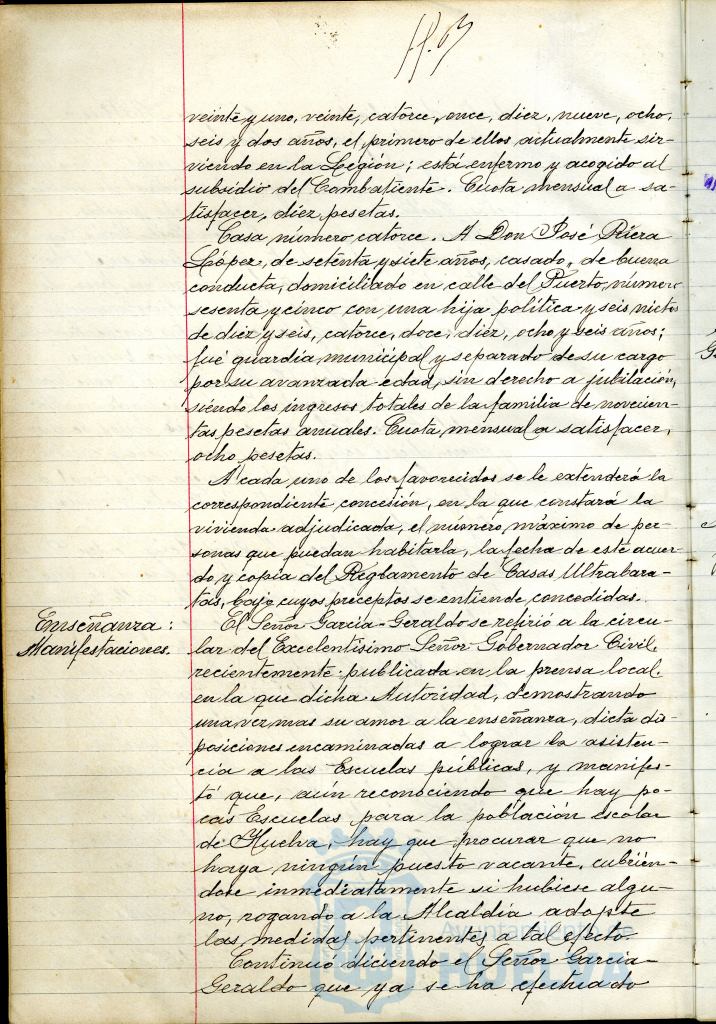 veinte y uno, veinte, catorce, once, diez, nueve, ocho,
seis y dos años, el primero de ellos actualmente sir-
viendo en la Legión; está enfermo y acogido al
subsidio del Combatiente. Cuota mensual a sa-
tisfacer, diez pesetas.
Casa número catorce. A Don José Riera
López, de setenta y siete años, casado, de buena
conducta, domiciliado en calle del Puerto, número
sesenta y cinco con una hija política y seis nietos
de diez y seis, catorce, doce, diez, ocho y seis años;
fué guardia municipal y separado de su cargo
por su avanzada edad, sin derecho a jubilación,
siéndo los ingresos totales de la familia de novecien-
tas pesetas anuales. Cuota mensual a satisfacer,
ocho pesetas.
A cada uno de los favorecidos se le extenderá la
correspondiente concesión, en la que constará la
vivienda adjudicada, el número máximo de per-
sonas que puedan habitarla, la fecha de este acuer-
do y copia del Reglamento de Casas Ultrabara-
tas, bajo cuyos preceptos se entiende concedidas.
Enseñanza:
Manifestaciones.
El Señor García-Geraldo se refirió a la circu-
lar del Excelentísimo Señor Gobernador Civil,
recientemente publicada en la prensa local,
en la que dicha Autoridad, demostrando
una vez mas su amor a la enseñanza, dicta dis-
posiciones encaminadas a lograr la asisten-
cia a las Escuelas públicas, y manifes-
tó que, aún reconociendo que hay po-
cas Escuelas para la población escolar
de Huelva, hay que procurar que no
haya ningún puesto vacante, cubrién-
dose inmediatamente si hubiese algu-
no, rogando a la Alcaldía adopte
las medidas pertinentes a tal efecto.
Continuó diciendo el Señor García-
Geraldo que ya se ha efectuado
Ayuntamiento de
HUELVA